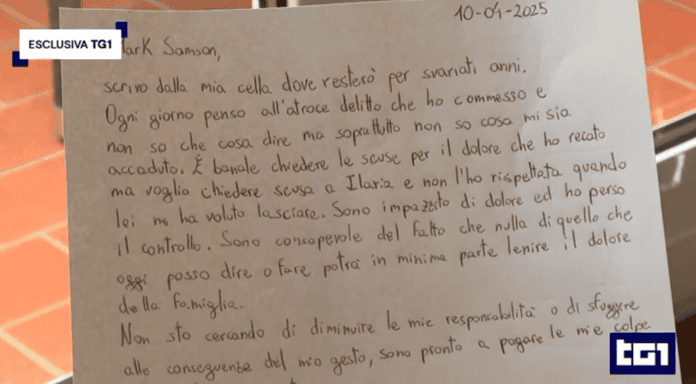 ESCLUSIVA TG1
10-04-2025
Mark Samson,
scrivo dalla mia cella dove resterò per svariati anni.
Ogni giorno penso all'atroce delitto che ho commesso e
non so che cosa dire ma soprattutto non so cosa mi sia
accaduto. È banale chiedere le scuse per il dolore che ho recato
ma voglio chiedere scusa a Ilaria e non l'ho rispettata quando
lei mi ha voluto lasciare. Sono impazzito di dolore ed ho perso
il controllo. Sono consapevole del fatto che nulla di quello che
oggi posso dire o fare potrà in minima parte lenire il dolore
della famiglia.
Non sto cercando di diminuire le mie responsabilità o di sfuggire
alle conseguenze del mio gesto, sono pronto a pagare le mie colpe
tg1